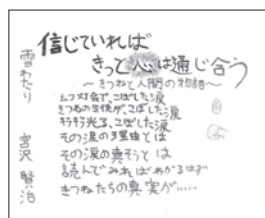 信じていれば
きっと心は通じ合う
～きつねと人間の物語～
雪わたり
宮沢 賢治
幻灯会で、こぼした涙
きつねの生徒が、こぼした涙
キラキラ光る、こぼした涙
その涙の理由とは
その涙の真そうとは
読んでみればわかるはず
きつねたちの真実が……